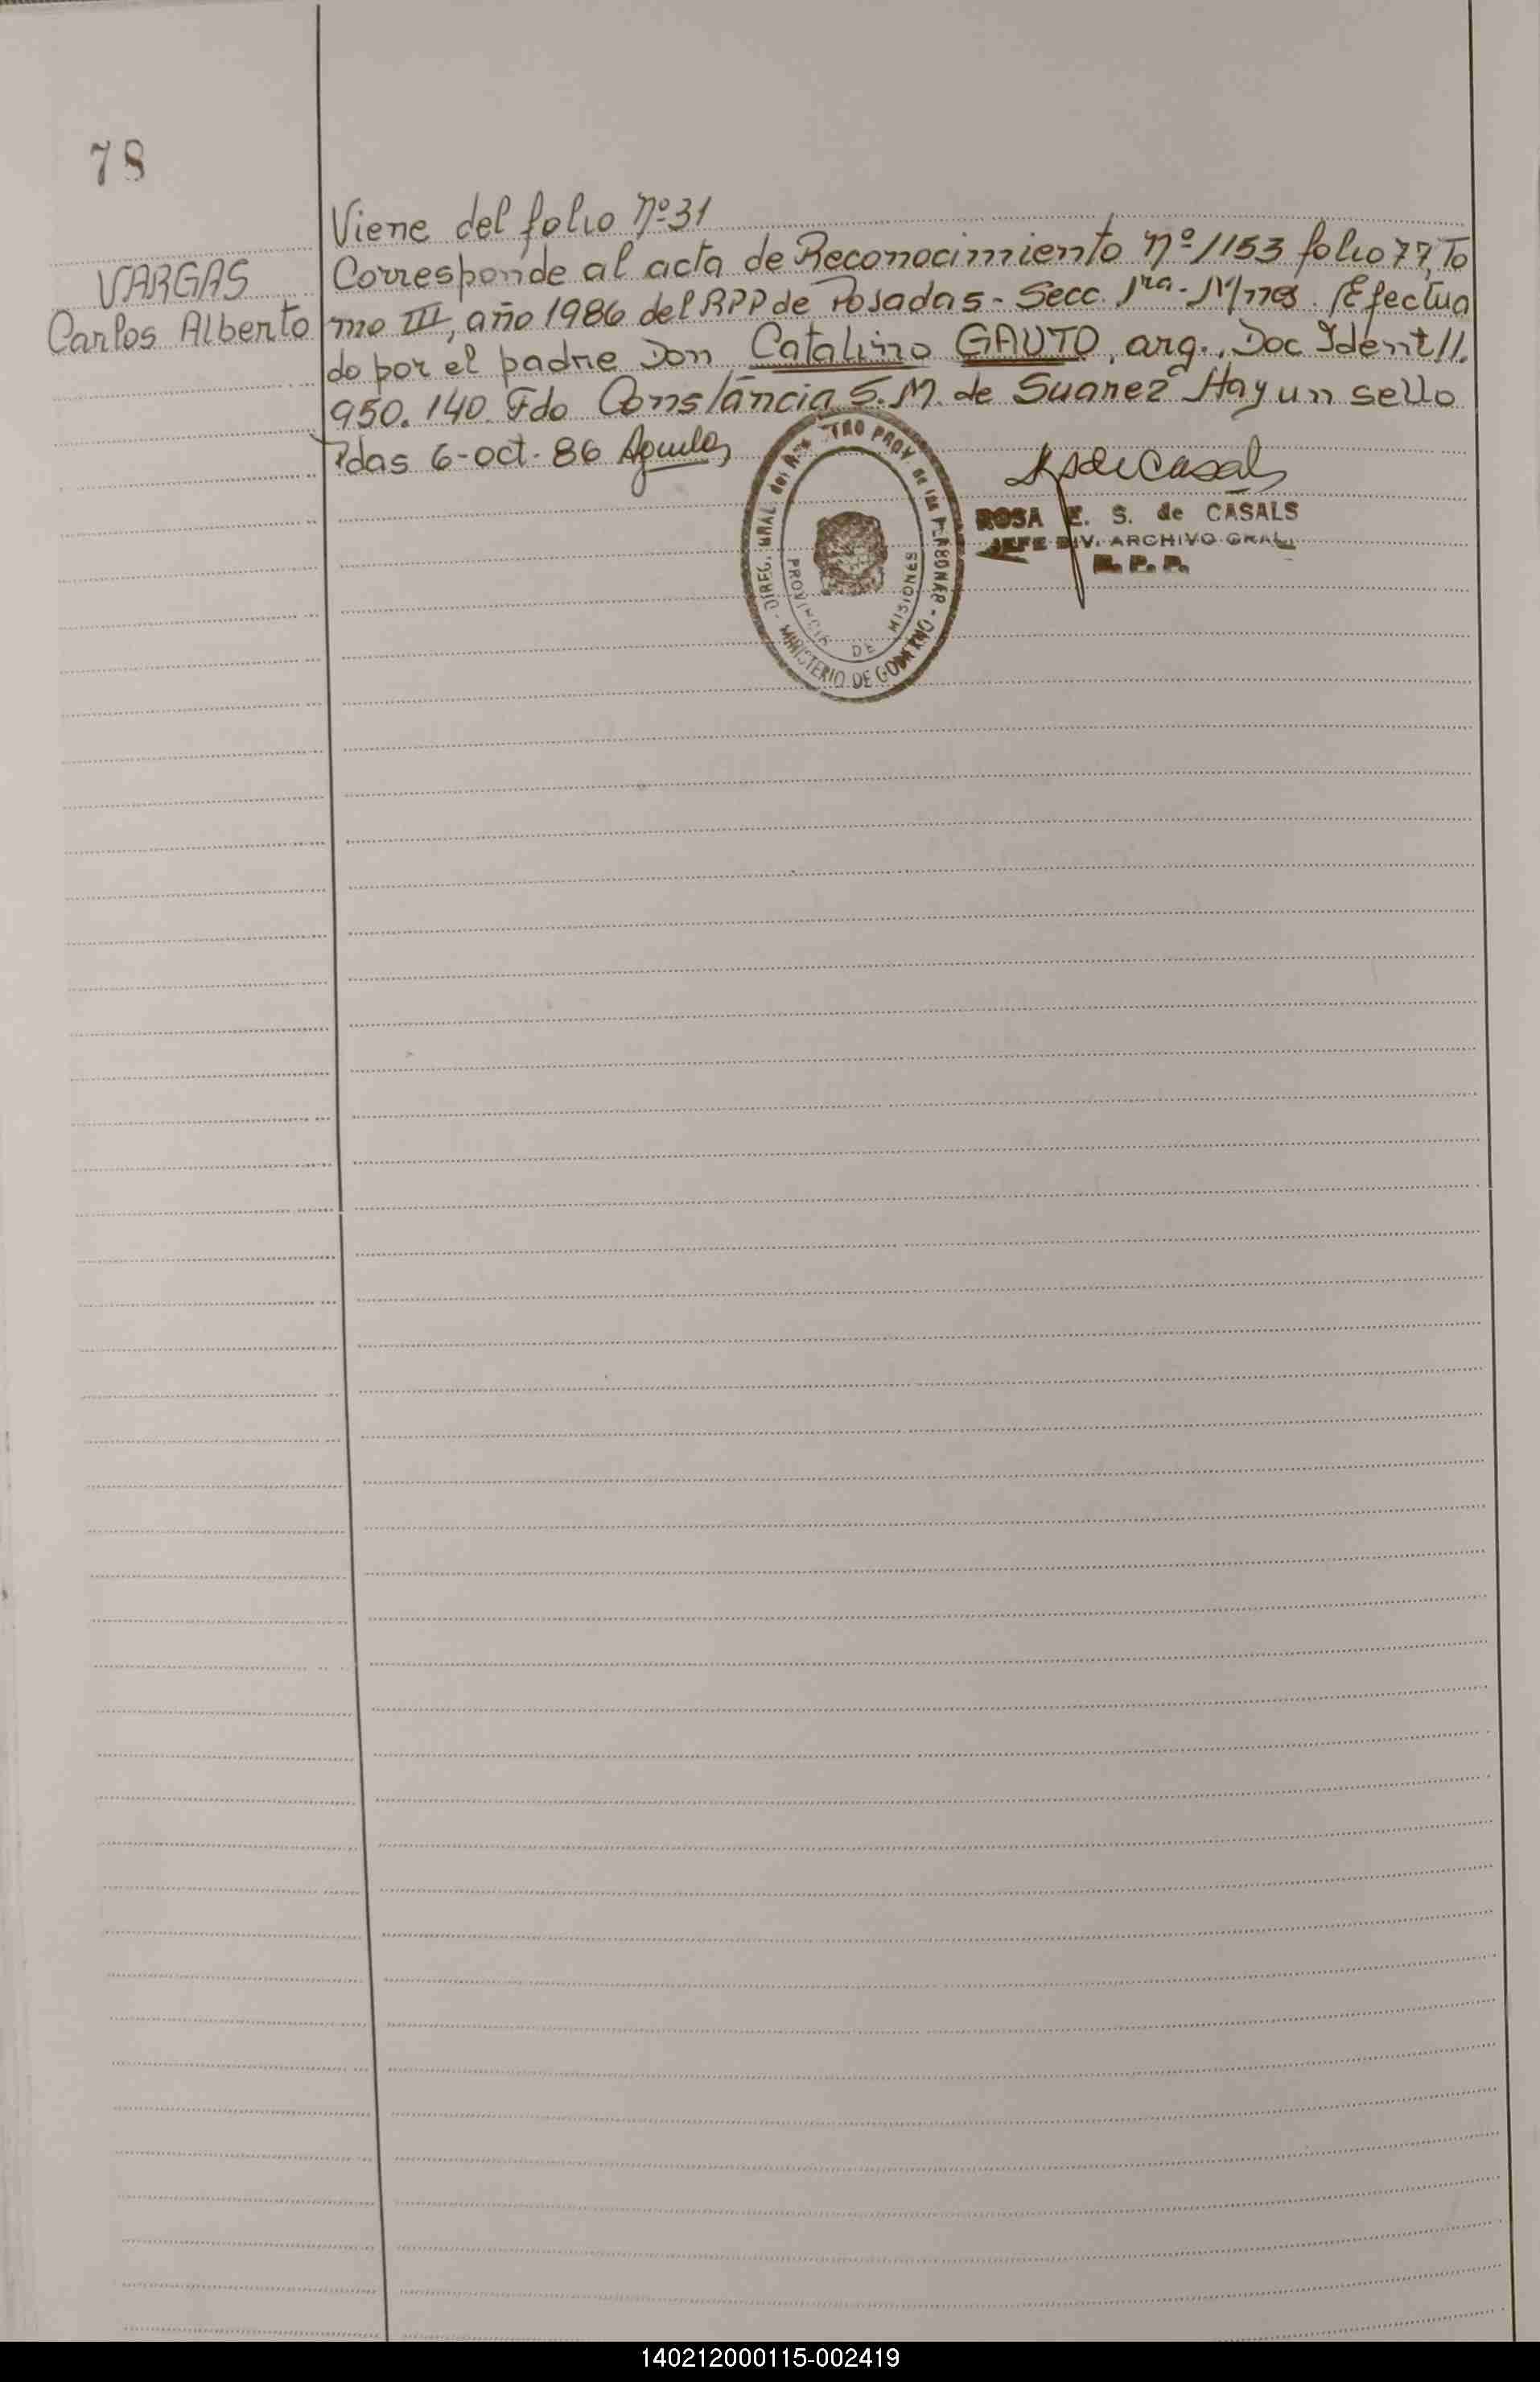 78
Viene del folio Nº 31
VARGAS
Carlos Alberto
Corresponde al acta de Reconocimiento Nº 1153 folio 77, To
mo III, año 1986 del RPP de Posadas - Secc. 1ra - Mnes. Efectua
do por el padre Don Catalino GAUTO, arg., Doc Ident 11.
950.140. Fdo Constancia S.M. de Suarez Hay un sello
Pdas 6-oct-86
DIREC. GRAL. del PROV. de las PERSONAS - MINISTERIO DE GOBIERNO
PROVINCIA DE MISIONES
ROSA E. S. de CASALS
JEFE DIV. ARCHIVO GRAL.
R. P. P.
140212000115-002419